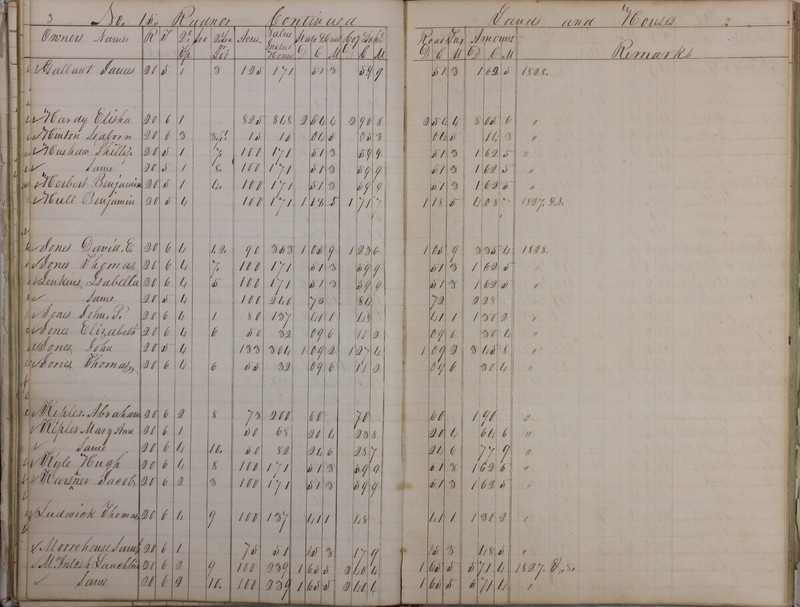 3 No. 15. Radnor Continued Lands and Houses
Owners Names R T Acres Value Road Tax Amount Remarks
Gallant James 20 5 1 3 125 171 51 3 59 9 51 3 1 62 5 1828.
Hardy Elisha 20 6 1 825 848 2 54 4 2 96 8 2 54 4 8 05 6 "
Hinton Seaborn 20 6 3 15 15 04 5 05 3 04 5 14 3 "
Phillip 20 5 1 7 100 171 51 3 59 9 51 3 1 62 5 "
Same 20 5 1 8 100 171 51 3 59 9 51 3 1 62 5 "
Herbert Benjamin 20 5 1 4 100 171 51 3 59 9 51 3 1 62 5 "
Hull Benjamin 20 5 4 100 171 1 18 5 1 71 7 1 18 5 4 08 7 1827. & 8.
Jones David. E. 20 6 4 12 90 353 1 05 9 1 23 6 1 05 9 3 35 4 1828.
Jones Thomas, 20 6 4 7 100 171 51 3 59 9 51 3 1 62 5 "
Jenkins, Isabella 20 6 4 5 100 171 51 3 59 9 51 3 1 62 5 "
Same 20 5 4 100 240 72 84 72 2 28 "
Jones John. 20 6 4 1 80 137 41 1 48 41 1 1 30 2 "
Jones Elizabeth 20 6 4 6 50 32 09 6 11 2 09 6 30 4 "
Jones, John 20 5 4 133 364 1 09 2 1 27 4 1 09 2 3 45 8 "
Jones Thomas, 20 6 4 6 55 32 09 6 11 2 09 6 30 4 "
Kepler Abraham 20 6 2 8 73 200 60 70 60 1 90 "
Kepler Mary Ann 20 6 1 50 68 20 4 23 8 20 4 64 6 "
Same 20 6 4 10. 50 82 24 6 28 7 24 6 77 9 "
Kyle Hugh 20 6 4 8 100 171 51 3 59 9 51 3 1 62 5 "
Jacob 20 6 2 3 100 171 51 3 59 9 51 3 1 62 5 "
Ludwick Thomas 20 6 4 9 100 137 41 1 48 41 1 1 30 2 "
Moorehouse Saml 20 6 1 75 51 15 3 17 9 15 3 48 5 "
McIntosh 20 6 2 9 100 239 1 65 5 2 40 4 1 65 5 5 71 4 1827. & 8.
Same 20 6 2 10. 100 239 1 65 5 2 40 4 1 65 5 5 71 4 "